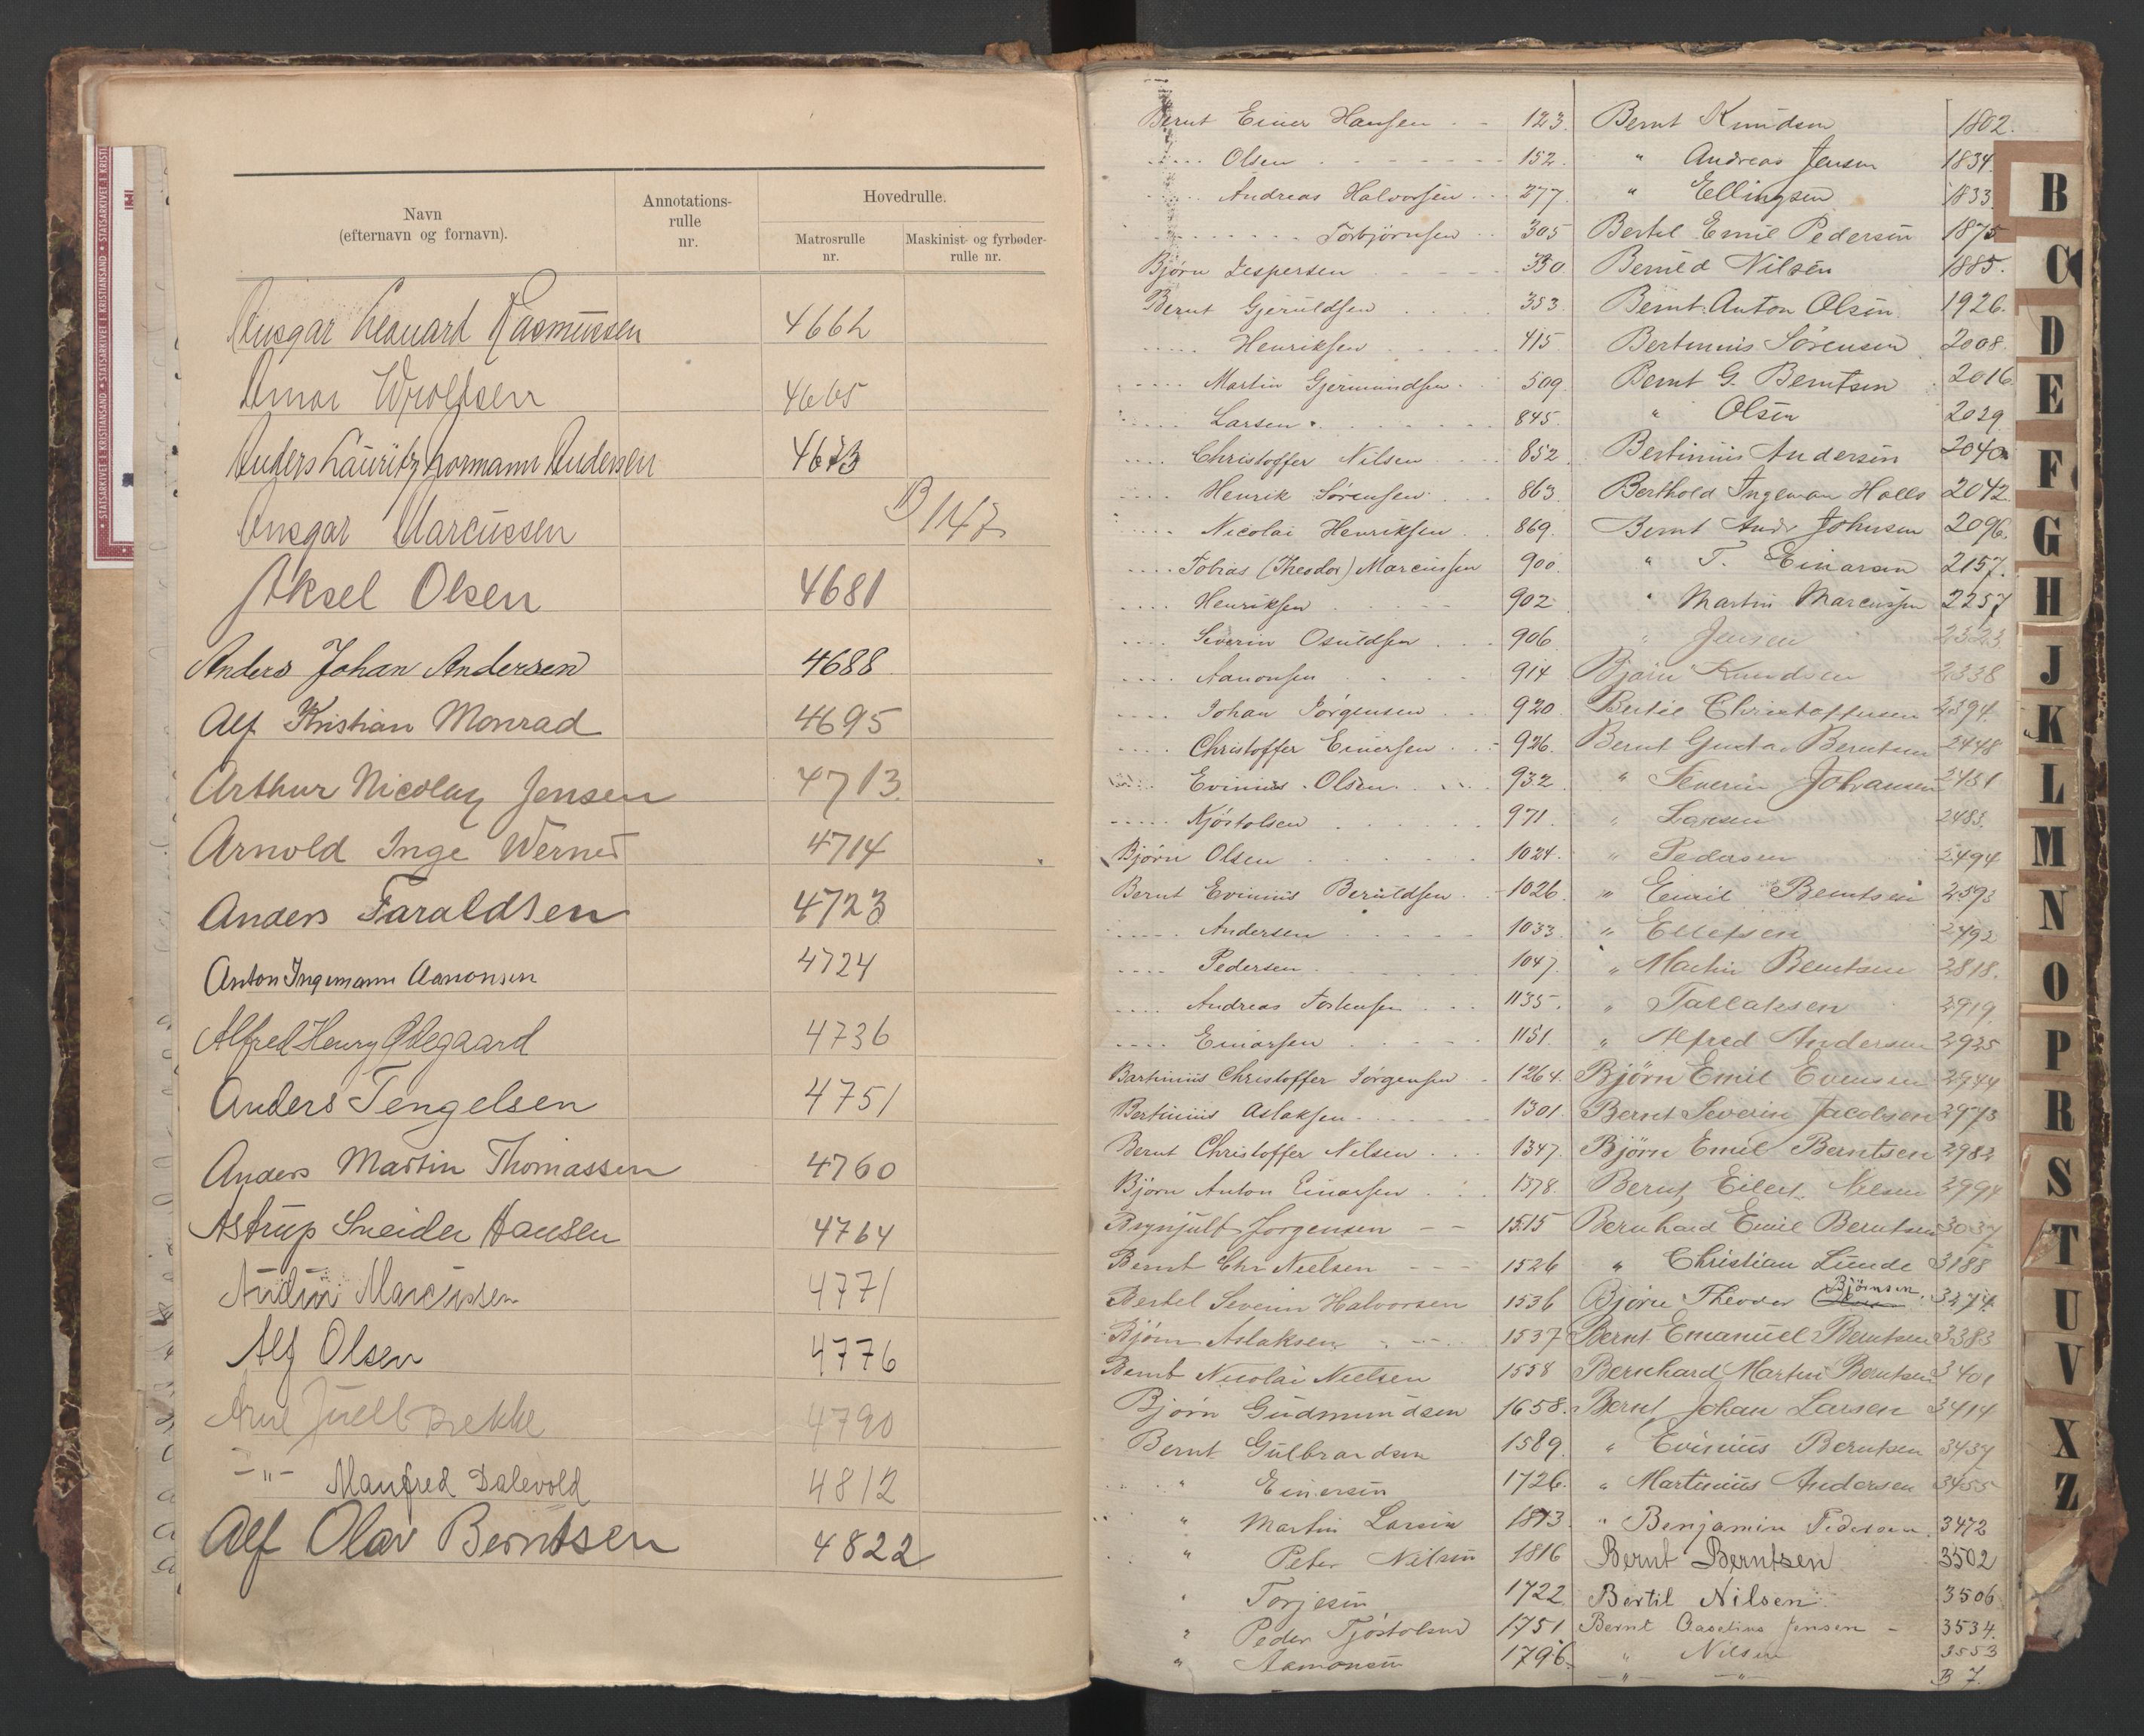 Navn
(efternavn og fornavn).
Annotations-
rulle
nr.
Hovedrulle.
Matrosrulle
nr.
Maskinist- og fyrbøder-
rulle nr.
Ansgar Leonard Rasmussen 4662
Einar Wroldsen 4665
Anders Lauritz Normann Andersen 4673
Ansgar Marcussen B/147
Aksel Olsen 4681
Anders Johan Andersen 4688
Alf Kristian Monrad 4695
Arthur Nicolay Jensen 4713
Arnold Inge Werner 4714
Anders Faraldsen 4723
Anton Ingemann Aanonsen 4724
Alfred Henry Ødegaard 4736
Anders Tengelsen 4751
Anders Martin Thomassen 4760
Astrup Sneider Hansen 4764
Audun Marcussen 4771
Alf Olsen 4776
Arne Juell Bekke 4790
-"- Manfred Dalevold 4812
Alf Olav Berntsen 4822
Bernt Einer Hansen 123.
Olsen 152.
Andreas Halvorsen 277
Torbjörnsen 305
Bjørn Jespersen 330
Bernt Gjeruldsen 353
Henriksen 415
Martin Gjermundsen 509
Larsen 845.
Christoffer Nilsen 852
Henrik Sörensen 863
Nicolai Henriksen 869.
Tobias (Theodor) Marcussen 900
Henriksen 902
Severin Osuldsen 906
Aanonsen 914
Johan Jörgensen 920
Christoffer Einersen 926
Evinius Olsen 932
Kjöstolsen 971
Bjørn Olsen 1024.
Bernt Evinius Beruldsen 1026
Andersen 1033
Pedersen 1047
Andreas Torkensen 1135
Einarsen 1151
Bartinius Christoffer Jörgensen 1264.
Bertinius Aslaksen 1301
Bernt Christoffer Nilsen 1347.
Bjørn Anton Einarsen 1378.
Brynjulf Jorgensen 1515
Bernt Chr Nielsen 1526
Bertel Severin Halvorsen 1536
Bjørn Aslaksen 1537
Bernt Nicolai Nielsen 1558
Bjørn Gudmundsen 1658.
Bernt Gulbrandsen 1589
" Einersen 1726.
" Martin Larsen 1813
" Peter Nilsen 1816
" Torjesen 1722
" Peder Tjöstolsen 1751
" Aamonsen 1796
Bernt Knudsen 1802.
" Andreas Jensen 1834.
" Ellingsen 1833
Bertel Emil Pedersen 1875
Beruld Nilsen 1885.
Bernt Anton Olsen 1926.
Bertinius Sörensen 2008
Bernt G. Berntsen 2016
" Olsen 2029
Bertinius Andersen 2040
Berthold Ingeman Holls 2042
Bernt Andr Johnsen 2096.
" T. Einarsen 2157.
" Martin Marcussen 2257
" Jensen 2323
Bjørn Knudsen 2338
Bertil Christoffersen 2394
Bernt Gustav Berntsen 2448
" Severin Johansen 2481
" Larsen 2483.
" Pedersen 2494
" Emil Berntsen 2593
" Ellefsen 2492
" Martin Berntsen 2818.
" Tallaksen 2919
" Alfred Andersen 2925
Bjørn Emil Evensen 2944
Bernt Severin Jacobsen 2973
Bjørn Emil Berntsen 2982
Bernt Eilert Nilsen 2994
Bernhard Emil Berntsen 3037
" Christian Lunde 3188
Bjørn Theodor Bjørnsen 3274
Bernt Emanuel Berntsen 3383
Bernhard Martin Berntsen 3401
Bernt Johan Larsen 3414
" Evinius Berntsen 3437
" Martinius Andersen 3455
" Benjamin Pedersen 3472
Bernt Berntsen 3502
Bertil Nilsen 3506
Bernt Jensen 3534
" Nilsen 3553
-"- -"- B 7.
B
C
D
E
F
G
H
J
K
L
M
N
O
P
R
S
T
U
V
X
Z
STATSARKIVET I KRISTIANSAND • STATSARKIVET I KRISTIANSAND • STATSARKIVET I KRISTI